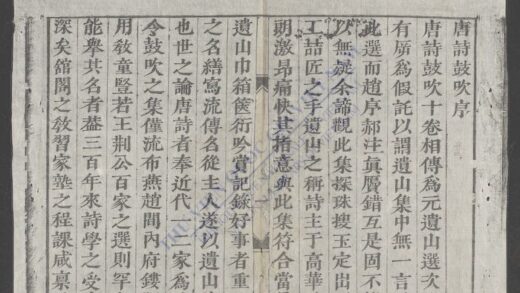 唐詩鼓吹序
唐詩鼓吹十卷相傳為元遺山選次
有厲為假託以謂遺山集中無一言
此選而趙序郝注真贋錯互是固不
以無疑余諦觀此集探珠搜玉定出
工喆匠之手遺山之稱詩主于高華
朗激昂痛快其指意與此集符合當
遺山巾箱篋衍吟賞記錄好事者重
之名繕寫流傳名從主人遂以遺山
也世之論唐詩者奉近代一二家為
令鼓吹之集僅流布燕趙間內府鏤
用教童豎若王荆公百家之選則罕
能舉其名者葢三百年來詩學之受
深矣館閣之教習家塾之程課咸稟